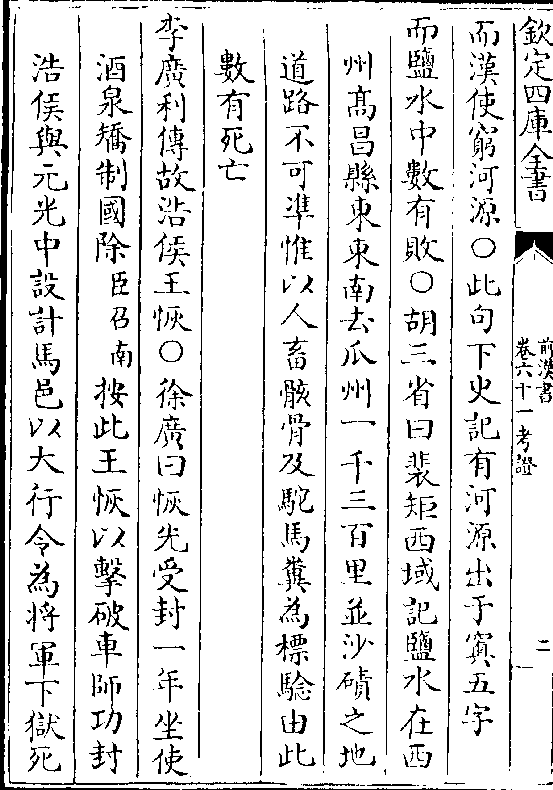 欽定四庫全書
前漢書
卷六十一考證
二
而漢使窮河源〇此句下史記有河源出于窴五字
而鹽水中數有敗〇胡三省曰裴矩西域記鹽水在西
州髙昌縣東東南去瓜州一千三百里並沙磧之地
道路不可凖惟以人畜骸骨及駝馬糞為標騐由此
數有死亡
李廣利傳故浩侯王恢〇徐廣曰恢先受封一年坐使
酒泉矯制國除臣召南按此王恢以擊破車師功封
浩侯與元光中設計馬邑以大行令為将軍下獄死